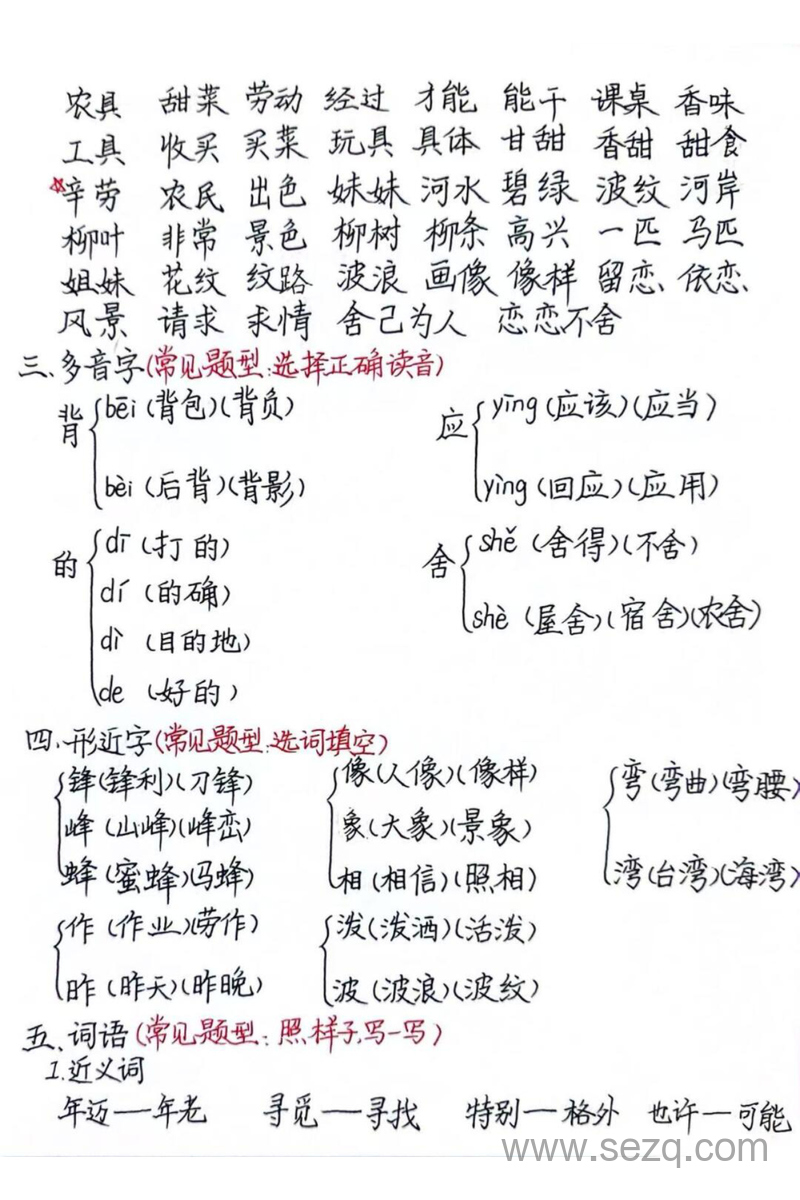 农具 甜菜 劳动 经过 才能 能干 课桌 香味
工具 收买 买菜 玩具 具体 甘甜 香甜 甜食
☆辛劳 农民 出色 妹妹 河水 碧绿 波纹 河岸
柳叶 非常 景色 柳树 柳条 高兴 一匹 马匹
姐妹 花纹 纹路 波浪 画像 像样 留恋 依恋
风景 请求 求情 舍己为人 恋恋不舍
三、多音字(常见题型:选择正确读音)
背 bēi (背包)(背负)
bèi (后背)(背影)
应 yīng (应该)(应当)
yìng (回应)(应用)
的 dī (打的)
dí (的确)
dì (目的地)
de (好的)
舍 shě (舍得)(不舍)
shè (屋舍)(宿舍)(农舍)
四、形近字(常见题型:选词填空)
锋(锋利)(刀锋)
峰(山峰)(峰峦)
蜂(蜜蜂)(马蜂)
像(人像)(像样)
象(大象)(景象)
相(相信)(照相)
弯(弯曲)(弯腰)
湾(台湾)(海湾)
作(作业)(劳作)
昨(昨天)(昨晚)
泼(泼洒)(活泼)
波(波浪)(波纹)
五、词语(常见题型:照样子,写一写)
1.近义词
年迈——年老 寻觅——寻找 特别——格外 也许——可能
www.sezq.com